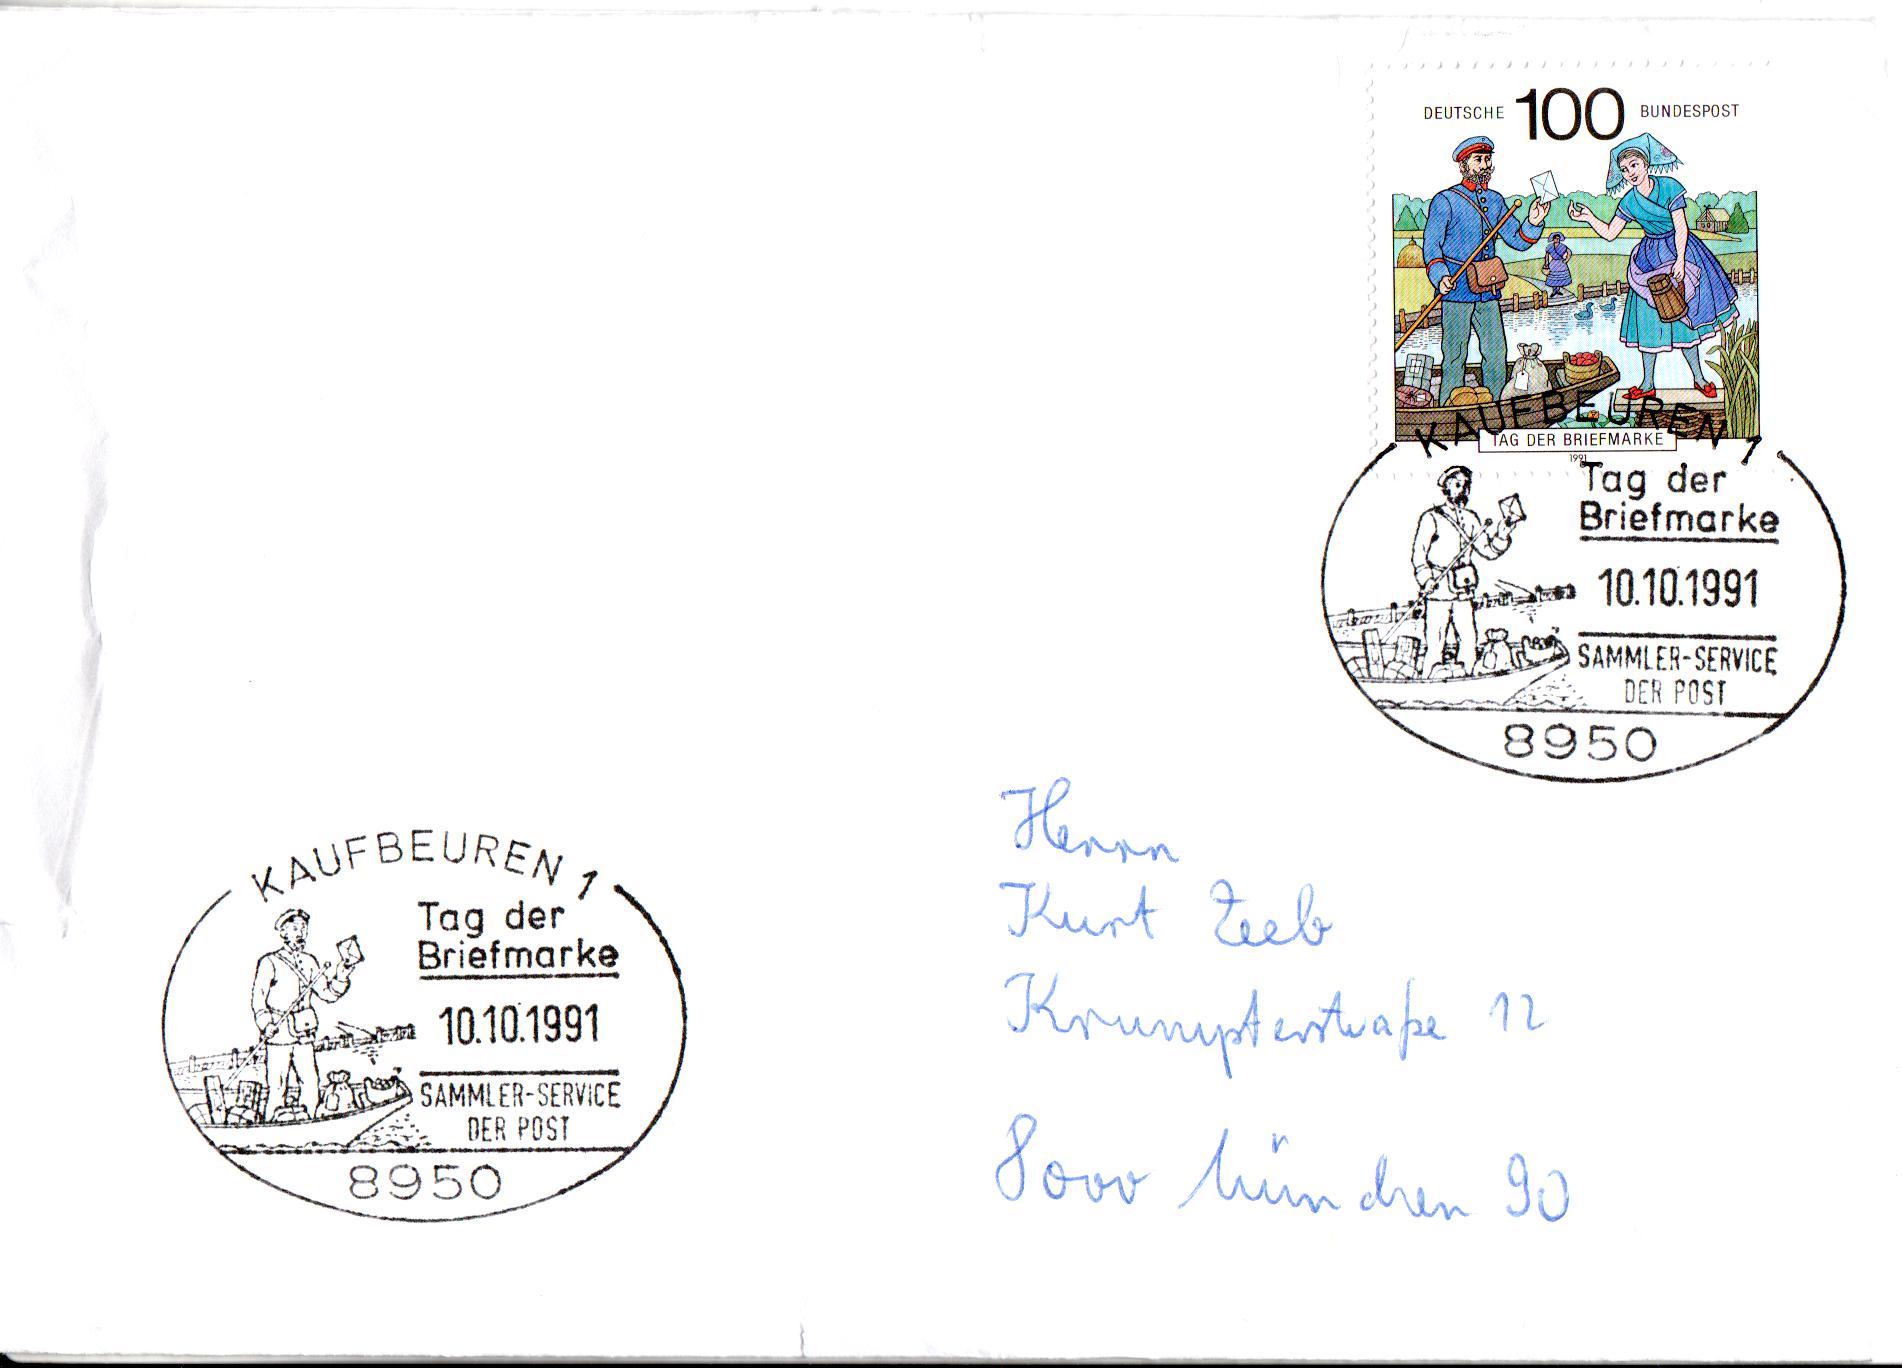 DEUTSCHE 100 BUNDESPOST
TAG DER BRIEFMARKE
1991
KAUFBEUREN 1
Tag der
Briefmarke
10.10.1991
SAMMLER-SERVICE
DER POST
8950
Herrn
Kurt Zeeb
Krumpterstraße 12
8000 München 90
KAUFBEUREN 1
Tag der
Briefmarke
10.10.1991
SAMMLER-SERVICE
DER POST
8950